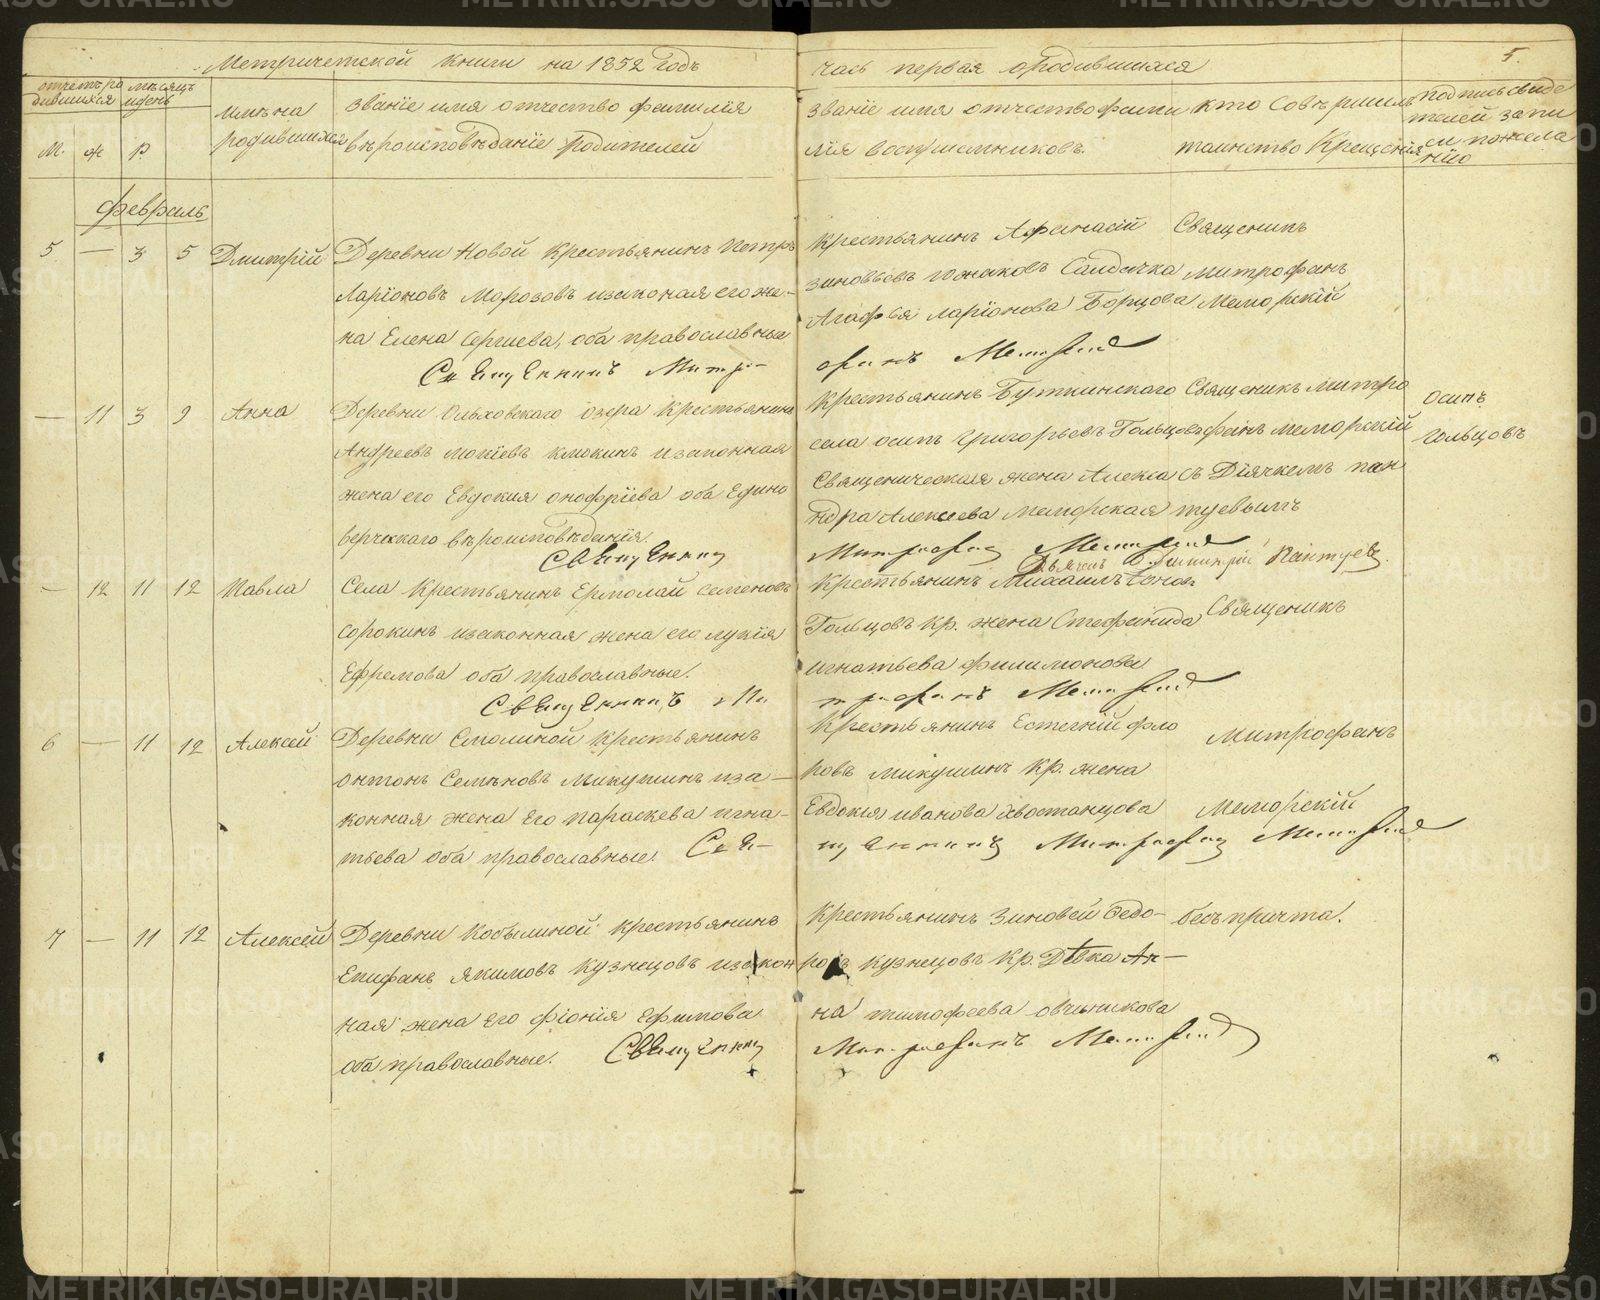 Метрической книги на 1852 годъ
часть первая ородившихся
5.
отчетъ родившихся
месяцъ идень
имена родившихся
званіе имя отчество фамилія
вѣроисповѣданіе родителей
званіе имя отчество фами
лія воспріемниковъ.
кто совѣршилъ
таинство крещенія
подпись свиде
телей запи
си пожела
нію
М. ж Р
февраль
5 — 3 5 Дмитрій
Деревни Новой крестьянинъ Петръ
Ларіоновъ Морозовъ изаконая его же-
на Елена Сергиева, оба православные
Священникъ Митро-
крестьянинъ Афанасій
зиновьевъ южаковъ Солдачка
Агафья Ларіонова Борцова
фанъ
Священикъ
митрофанъ
Меморскій
— 11 3 9 Анна
Деревни Ольховскаго озера Крестьянинъ
Андреевъ изаконная
жена его Евдокия онофріева оба Едино
верческаго вѣроисповѣданія.
Священникъ
крестьянинъ Буткинскаго
села осипъ григорьевъ Гольцовъ
Священическая жена Алекса
ндра Алексеева меморская
Митрофанъ
Священикъ митро
фанъ меморский
съ Діячкемъ пан
туевымъ
Осипъ
гольцовъ
Дмитрій Пантуевъ.
— 12 11 12 Павла
Села крестьянинъ Ермолай семеновъ
сорокинъ изаконная жена его лукія
Ефремова оба православные.
Священникъ Ми
Крестьянинъ Михаилъ
Гольцовъ кр. жена Стефанида
игнатьева филимонова
трофанъ
Священикъ
6 — 11 12 Алексей
Деревни Смолиной крестьянинъ
онтонъ Семѣновъ микушинъ иза-
конная жена Его параскева игна-
тьева оба православные. Свя-
Крестьянинъ фло
ровъ микушинъ кр. жена
Евдокия иванова хвостанцова
щенникъ Митрофанъ
Митрофанъ
Меморскій
7 — 11 12 Алексей
Деревни Кобылиной крестьянинъ
Епифанъ якимовъ кузнецовъ изакон
ная жена его фіонія Ефимова
оба православные. Священникъ
Крестьянинъ Зиновей Федо-
ровъ кузнецовъ кр. Дѣвка Ан-
на тимофеева овчиникова
Митрофанъ
безъ причта.
METRIKI.GASO-URAL.RU